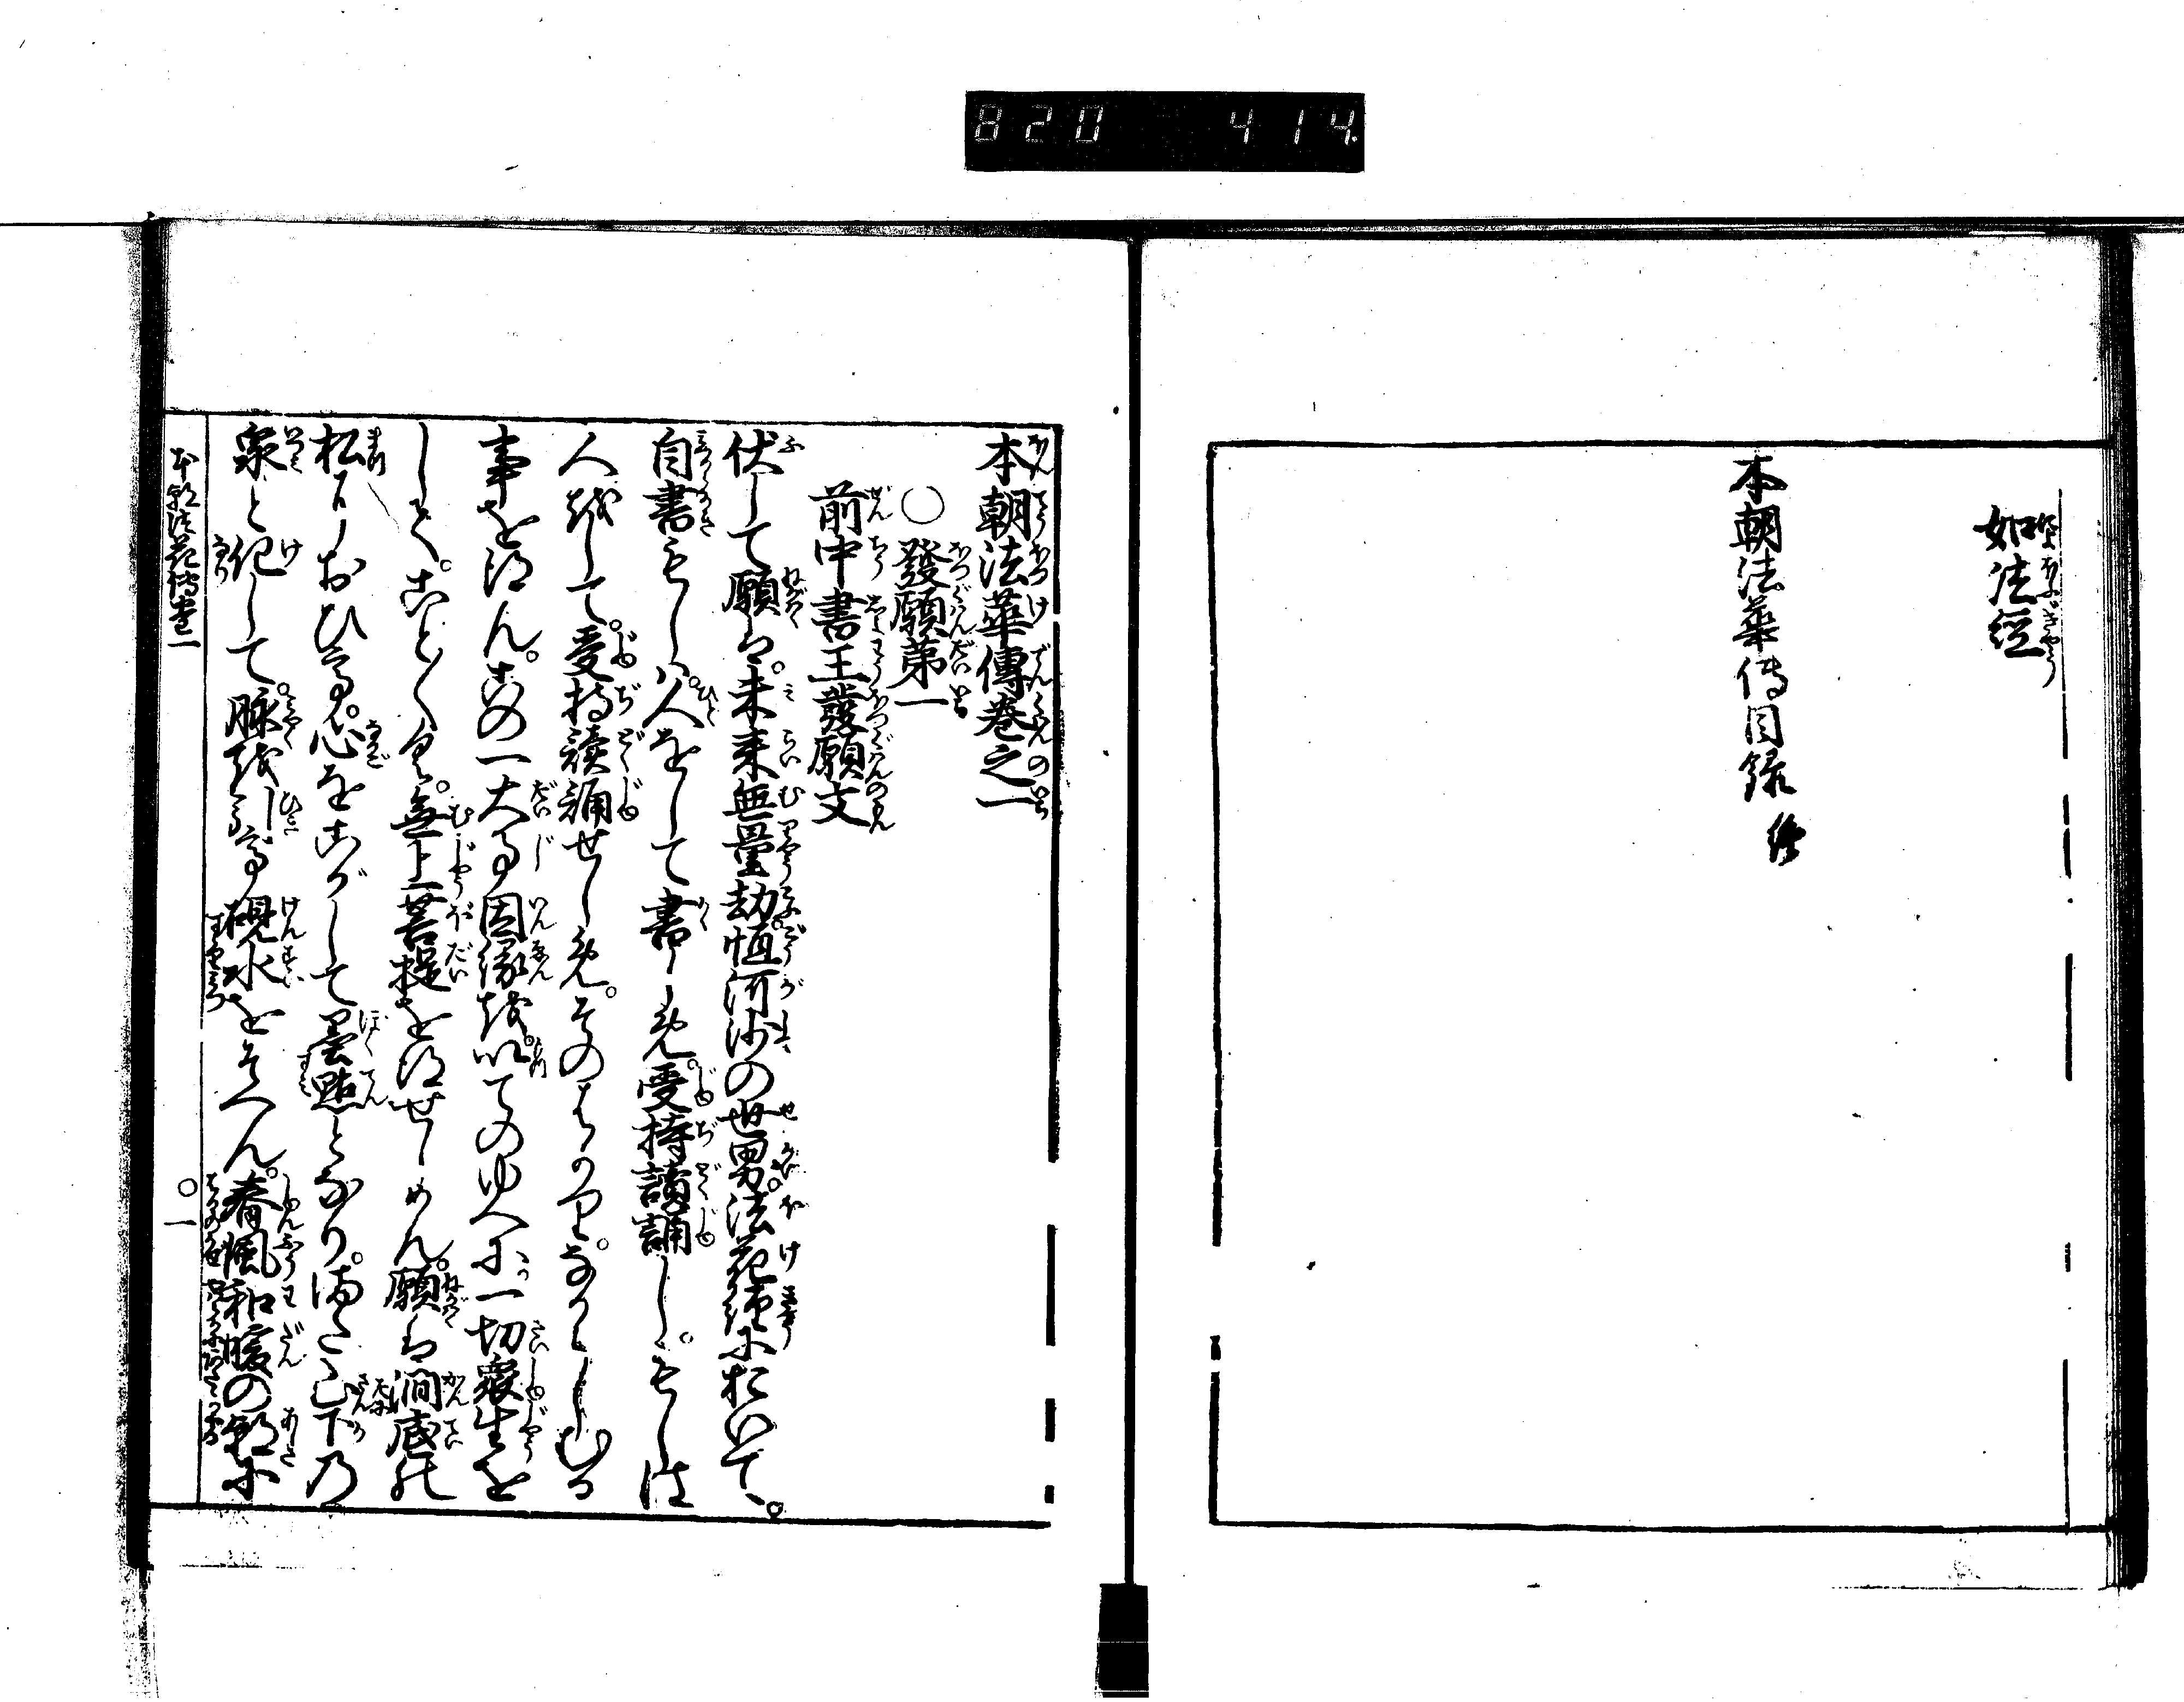 820 414
如法經
本朝法華傳目録終
本朝法華傳卷之一
○發願第一
前中書王發願文
伏して願くは。未来無量劫。恒河沙の世界。法花經におゐて、。
自書もしハ。人をして書しめ。受持讀誦し。もしは
人をして。受持讀誦せしめ。そのはかりなからしむる
事を得ん。あの一大事因縁を。以てのゆへに一切衆生を
しして。ことくく。無上菩提を得せしめん。願くは澗底の
松においる。心をこがして墨點となり。満たる山下乃
泉と化して。脉を引る硯水をそへん。春風和暖の朝に
本朝法花傳巻一
○一